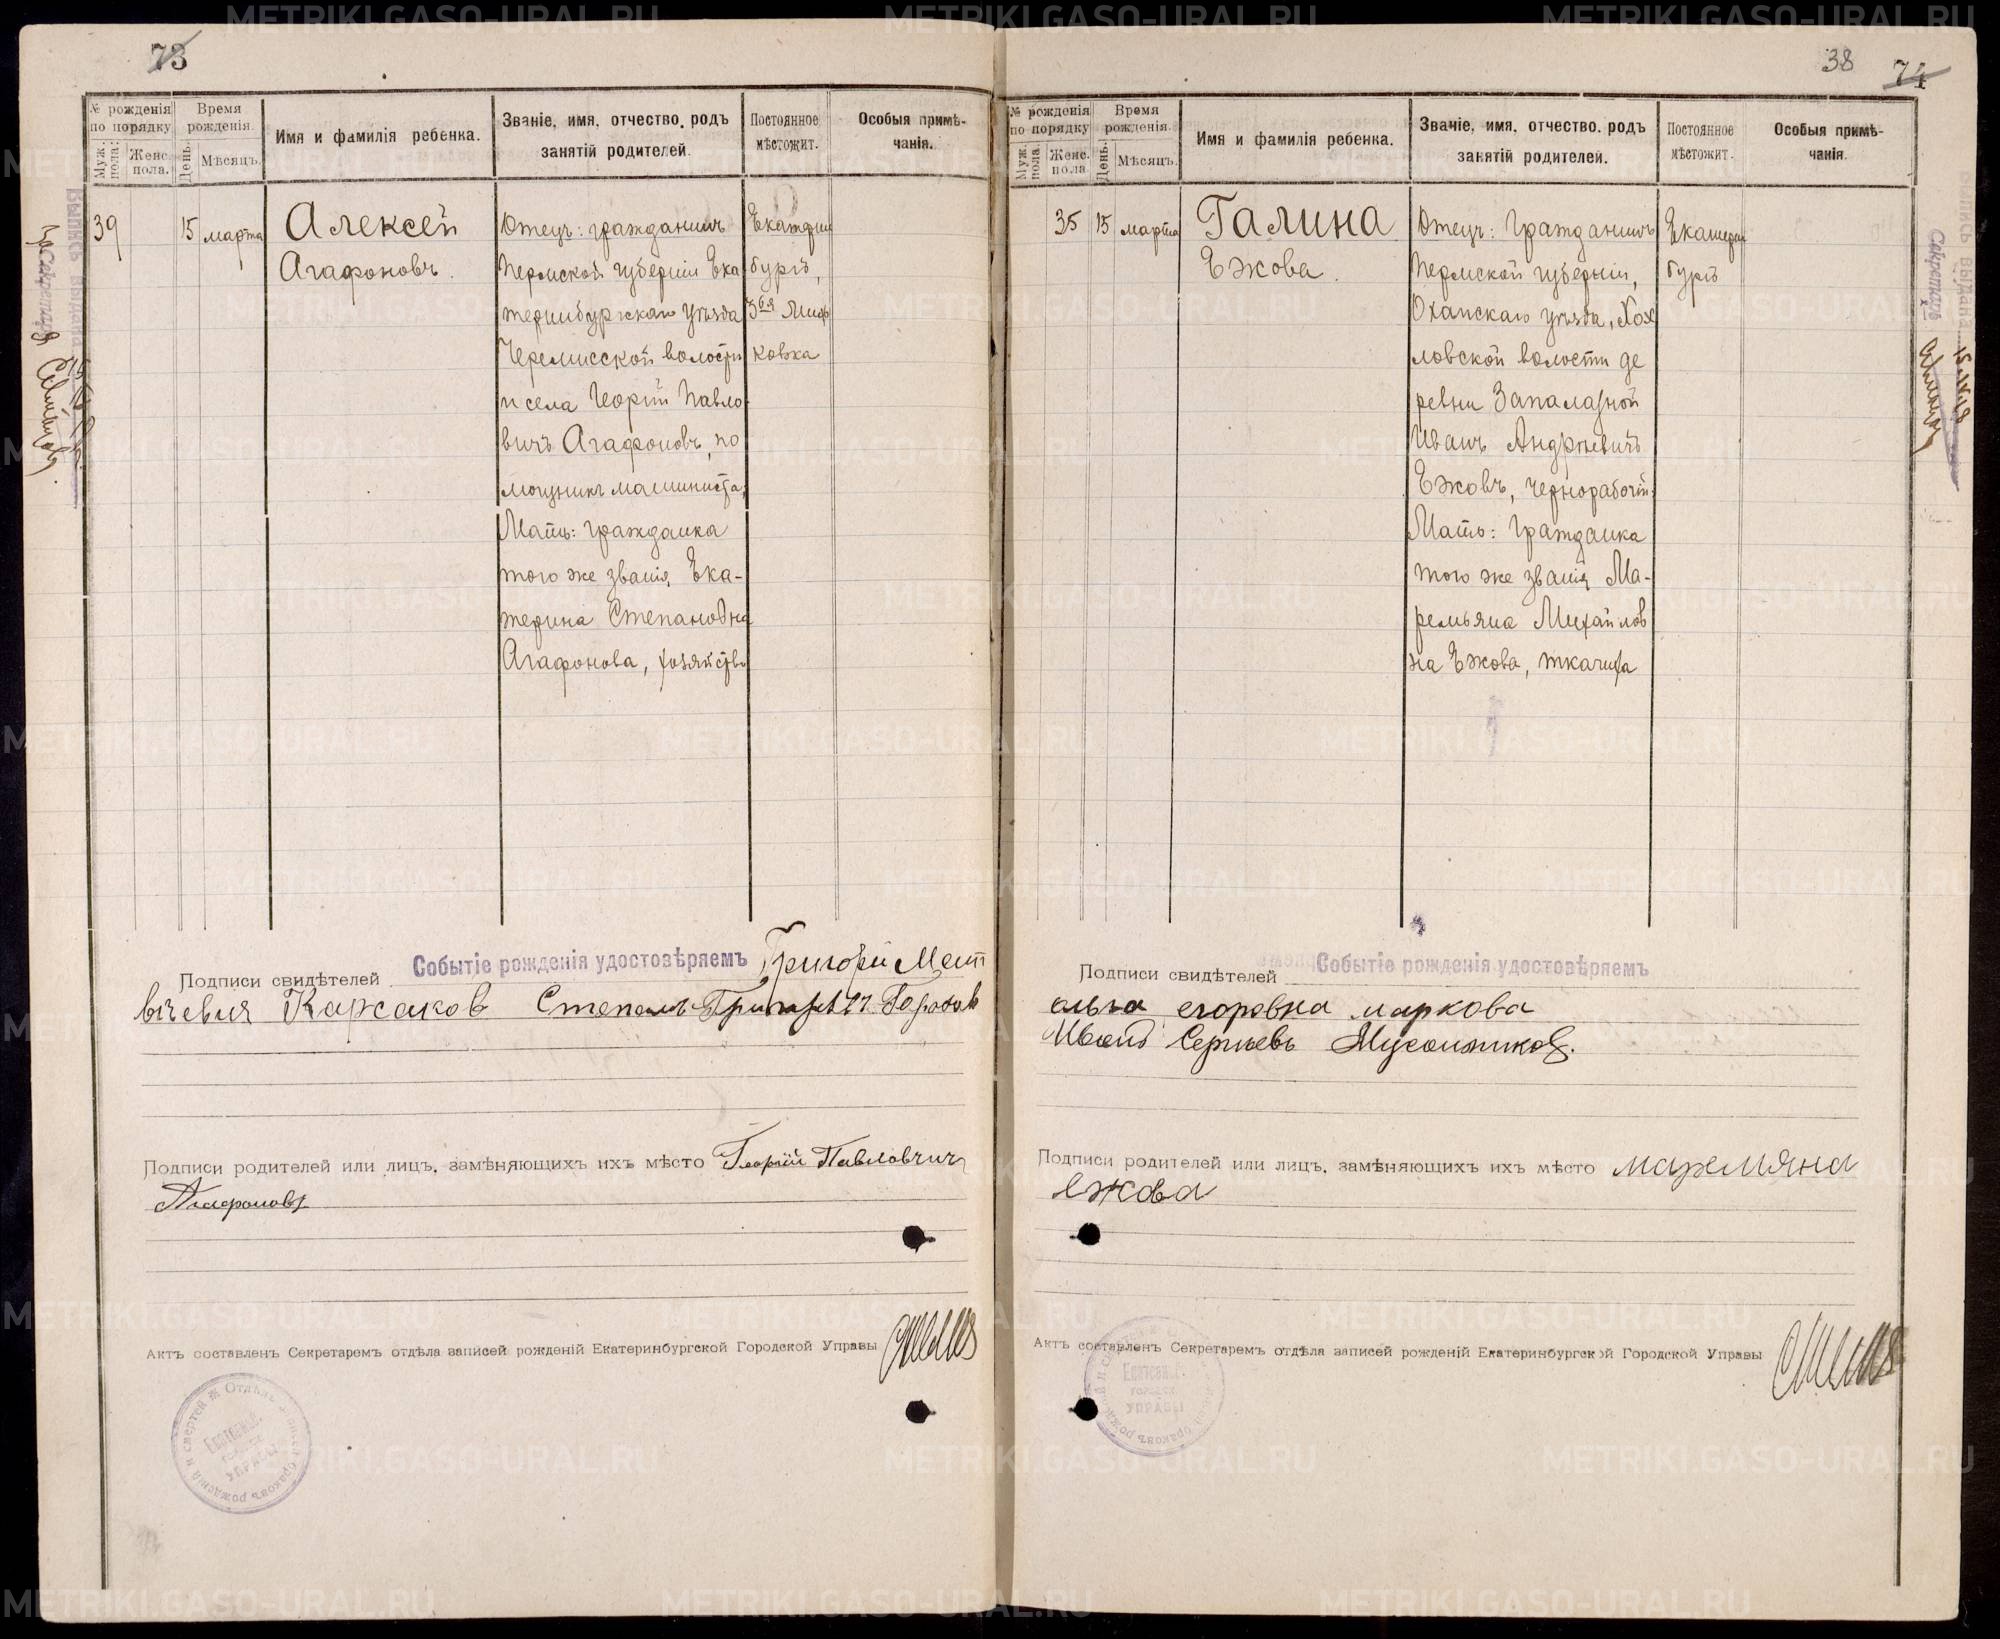 73
№ рожденія по порядку
Муж. пола.
Женс. пола.
Время рожденія.
День.
Мѣсяцъ.
Имя и фамилія ребенка.
Званіе, имя, отчество, родъ занятій родителей.
Постоянное мѣстожит.
Особыя примѣчанія.
39
15 марта
Алексей
Агафоновъ.
Отецъ: гражданинъ
Пермской губерніи Ека
теринбургскаго уѣзда
Черемисской волости
и села Георгій Павло
вичъ Агафоновъ, по
мощникъ машиниста,
Мать: гражданка
того же званія Ека-
терина Степановна
Агафонова, хозяйство
Екатерин
бургъ,
ковка
Подписи свидѣтелей Событіе рожденія удостовѣряемъ Григорій
Степанъ
Подписи родителей или лицъ, замѣняющихъ ихъ мѣсто Георгій Павловичъ
Агафоновъ
Актъ составленъ Секретаремъ отдѣла записей рожденій Екатеринбургской Городской Управы
38
74
№ рожденія по порядку
Муж. пола.
Женс. пола.
Время рожденія.
День.
Мѣсяцъ.
Имя и фамилія ребенка.
Званіе, имя, отчество, родъ занятій родителей.
Постоянное мѣстожит.
Особыя примѣчанія.
35
15 марта
Галина
Ежова.
Отецъ: Гражданинъ
Пермской губерніи,
Оханскаго уѣзда, Хох
ловской волости де
ревни
Иванъ Андрѣевичъ
Ежовъ, чернорабочій.
Мать: Гражданка
того же званія Ма-
ремьяна Михайлов
на Ежова, ткачиха
Екатерин
бургъ
Подписи свидѣтелей Событіе рожденія удостовѣряемъ
ольга егоровна маркова
Иванъ Сергѣевъ
Подписи родителей или лицъ, замѣняющихъ ихъ мѣсто маремяна
ежова
Актъ составленъ Секретаремъ отдѣла записей рожденій Екатеринбургской Городской Управы
METRIKI.GASO-URAL.RU